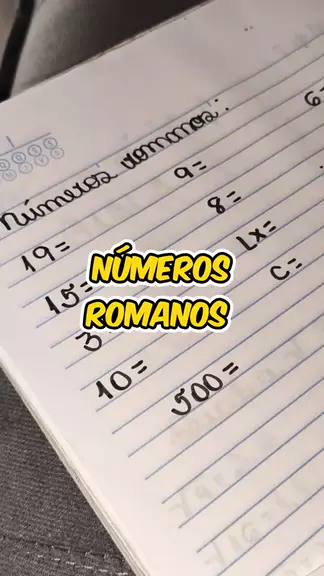 Números romanos:
19=
15=
3
10=
9=
8=
Lx=
C=
500=
6=
NÚMEROS
ROMANOS